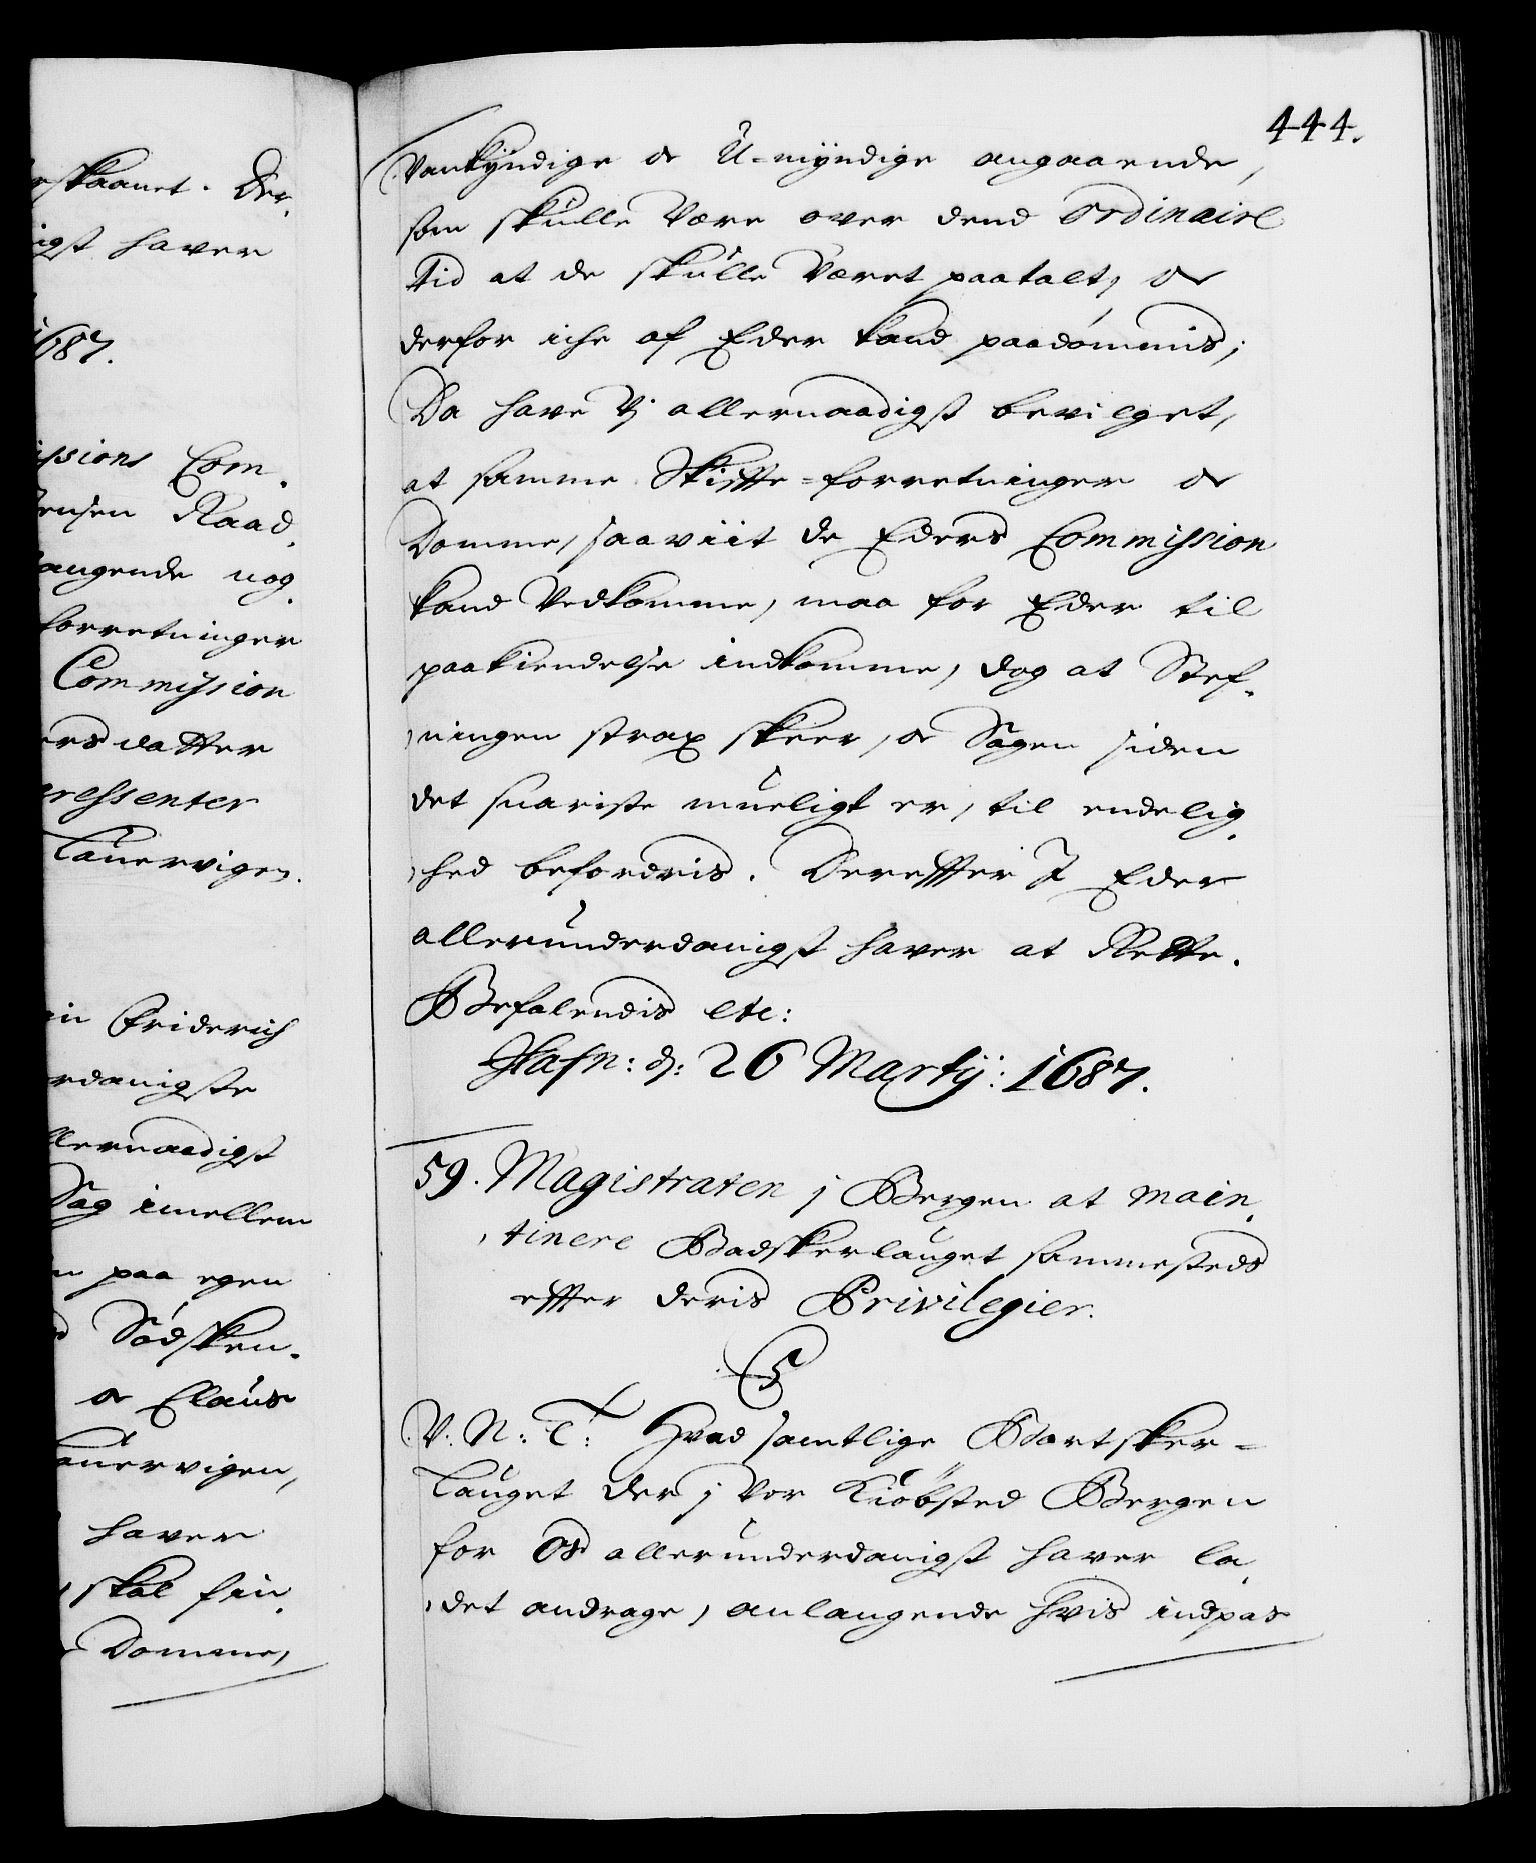 erskaanet. Der,
igst haver
1687.
issions Com,
Jensen Raad,
langende nog,
forretninger
Commission
ersdatter
eressenter
Lauervigen.
in Friderich
rdanigste
llernaadigst
Sag imellem
paa egen
Sødsken,
og Claus
Lauervigen,
haver
skal fin,
Domme,
444.
Vankyndige og U-myndige angaaende,
som skulle være over dend Ordinaire
tid at de skulle været paatalt, og
derfor iche af Eder kand paadømmis;
Da have Vj allernaadigst bevilget,
at samme Skiffte-forretninger og
Domme, saaviit de Eders Commission
kand Vedkomme, maa for Eder til
paakiendelse indkomme, dog at Stef,
,ningen strax skeer, og Sagen siden
det snariste mueligt er, til endelig,
,hed befordris. Dereffter I Eder
allerunderdanigst haver at Rette.
Befalendis etc:
Hafn: d: 26 Martij: 1687.
59. Magistraten j Bergen at main,
,tinere Badskerlauget sammesteds
effter deris Privilegier.
C5
V. N: T: Hvad samtlige Bartsker=
Lauget der j Vor Kiøbsted Bergen
for Os allerunderdanigst haver la,
,det andrage, anlangende hvis indpas